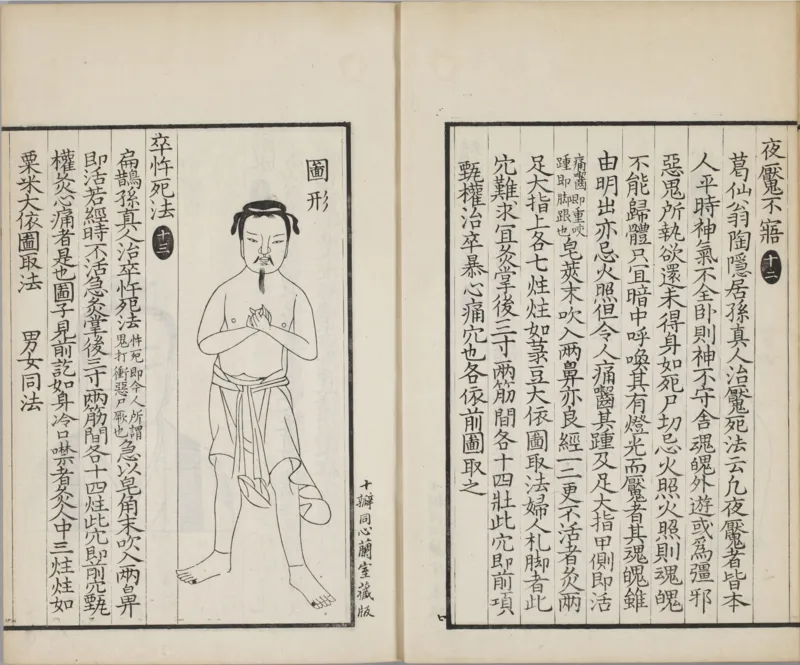 夜魘不寤 十二
葛仙翁陶隱居孫真人治魘死法云凡夜魘者皆本
人平時神氣不全卧則神不守舍魂魄外遊或爲彊邪
惡鬼所執欲還未得身如死尸切忌火照火照則魂魄
不能歸體只宜暗中呼喚其有燈光而魘者其魂魄雖
由明出亦忌火照但令人痛嚙其踵及足大指甲側即活
痛嚙即重咬踵即脚跟也皂莢末吹入兩鼻亦良經一二更不活者灸兩
足大指上各七炷炷如菉豆大依圖取法婦人札脚者此
穴難求宜灸掌後三寸兩筋間各十四壯此穴即前項
甄權治卒暴心痛穴也各依前圖取之
十瓣同心蘭室藏版
圖形
卒忤死法 十三
扁鵲孫真人治卒忤死法忤死即令人所謂鬼打衝惡尸厥也急以皂角末吹入兩鼻
即活若經時不活急灸掌後三寸兩筋間各十四炷此穴即前穴甄
權灸心痛者是也圖子見前訖如身冷口噤者灸人中三炷炷如
粟米大依圖取法 男女同法